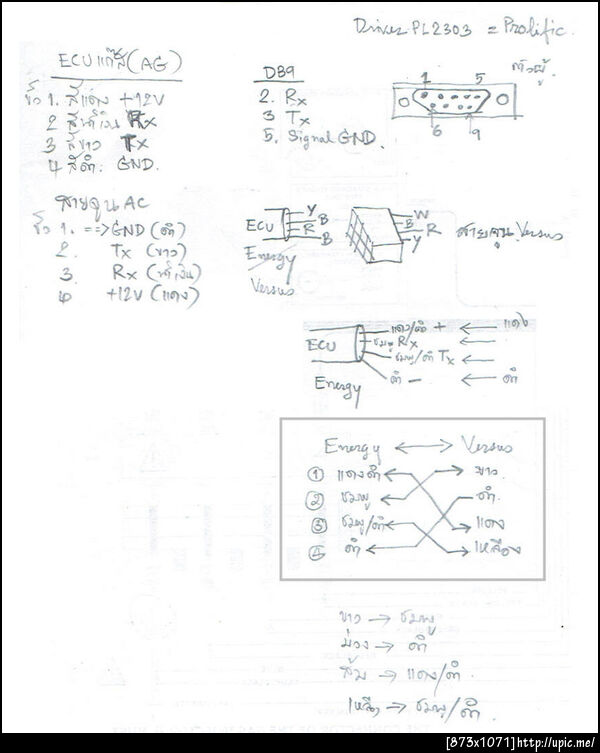 Driver PL2303 = Prolific.
ECU แก๊ส (AG)
ขั้ว 1. สีแดง +12V
2 สีน้ำเงิน Rx
3 สีขาว Tx
4 สีดำ. GND.
DB9
2. Rx
3 Tx
5. Signal GND.
ตัวผู้
1 5
6 9
สายจูน AC
ขั้ว 1. ==> GND (ดำ)
2. Tx (ขาว)
3. Rx (น้ำเงิน)
4 +12V (แดง)
ECU Y B R B
Energy
Versus
W B R Y
สายจูน Versus
ECU
แดง/ดำ + แดง
ชมพู Rx
ชมพู/ดำ Tx
ดำ - ดำ
Energy
Energy Versus
① แดงดำ ขาว
② ชมพู ดำ.
③ ชมพู/ดำ แดง
④ ดำ เหลือง
ขาว → ชมพู
ม่วง → ดำ
ส้ม → แดง/ดำ.
→ ชมพู/ดำ.
[873x1071]http://upic.me/